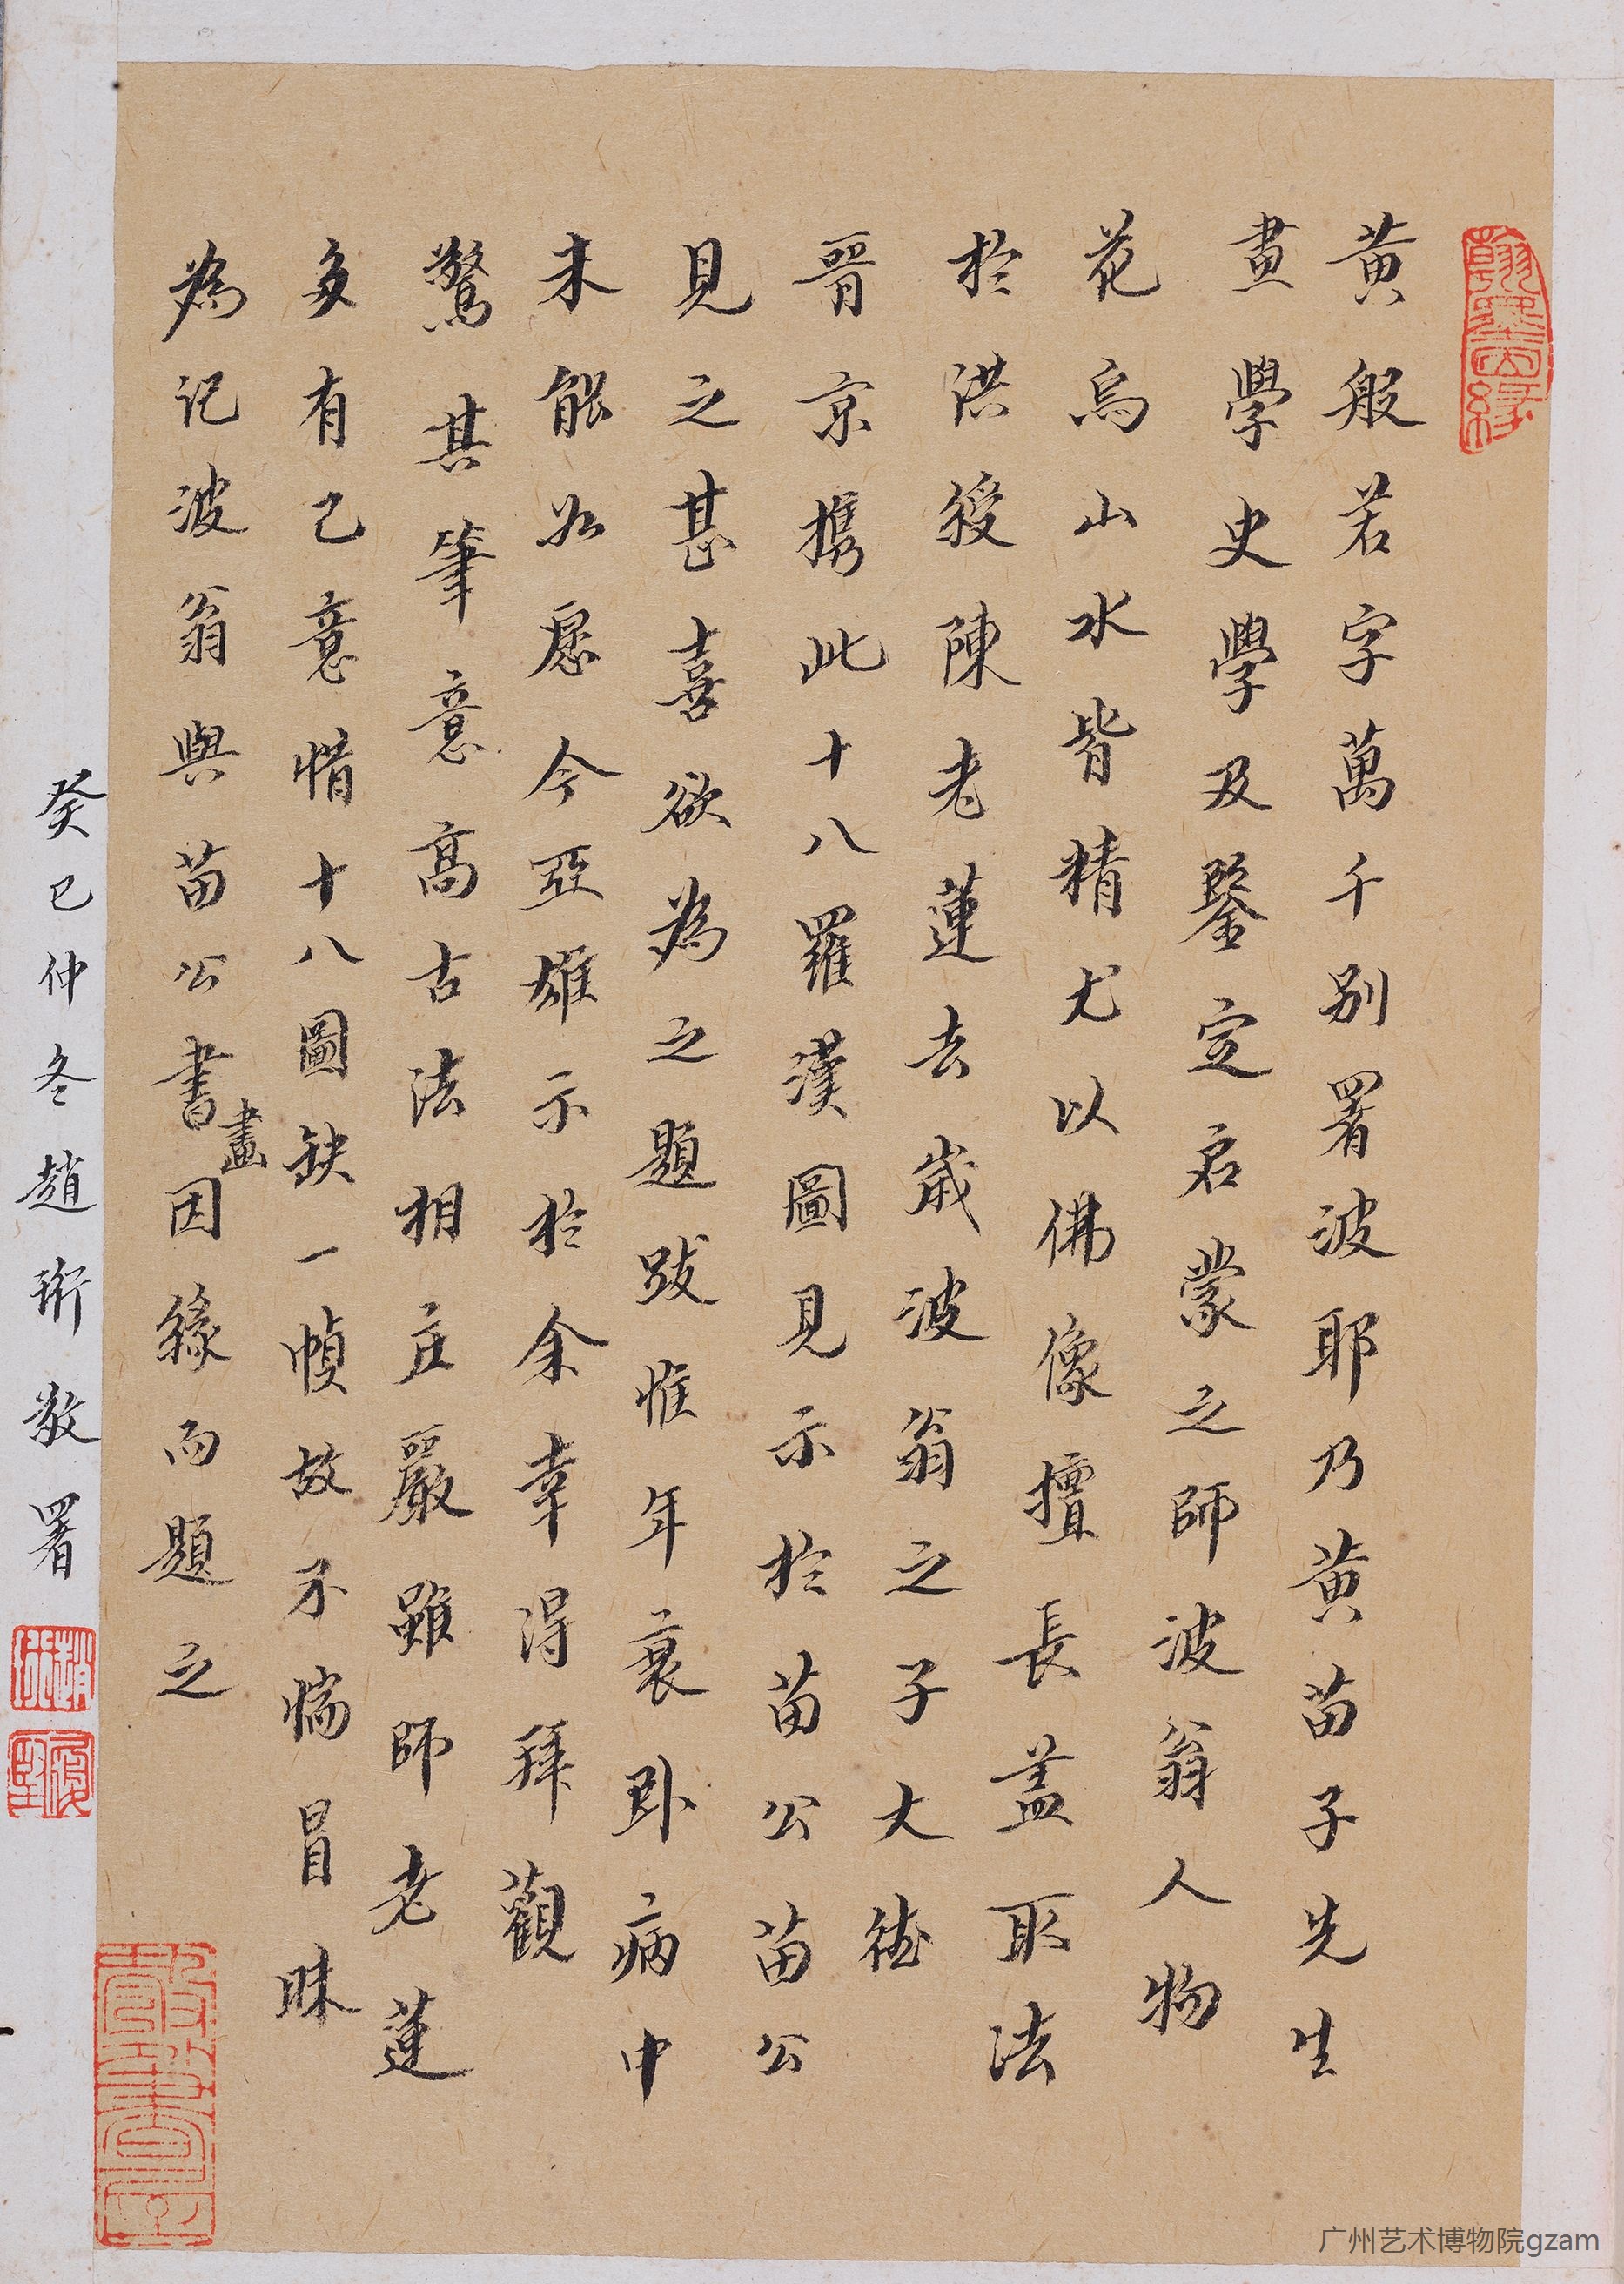 翰墨因緣
黄般若字萬千別署波耶乃黄苗子先生
畫學史學及鑒定启蒙之師波翁人物
花鳥山水皆精尤以佛像擅長盖取法
於洪綬陳老蓮去歲波翁之子大德
晋京携此十八羅漢圖見示於苗公苗公
見之甚喜欲為之題跋惟年衰卧病中
未能如愿今亞雄示於余幸得拜觀
驚其筆意高古法相庄嚴雖師老蓮
多有己意惜十八圖缺一幀故不惴冒昧
為记波翁與苗公書畫因緣而題之
癸巳仲冬趙珩敬署
趙珩
广州艺术博物院gzam